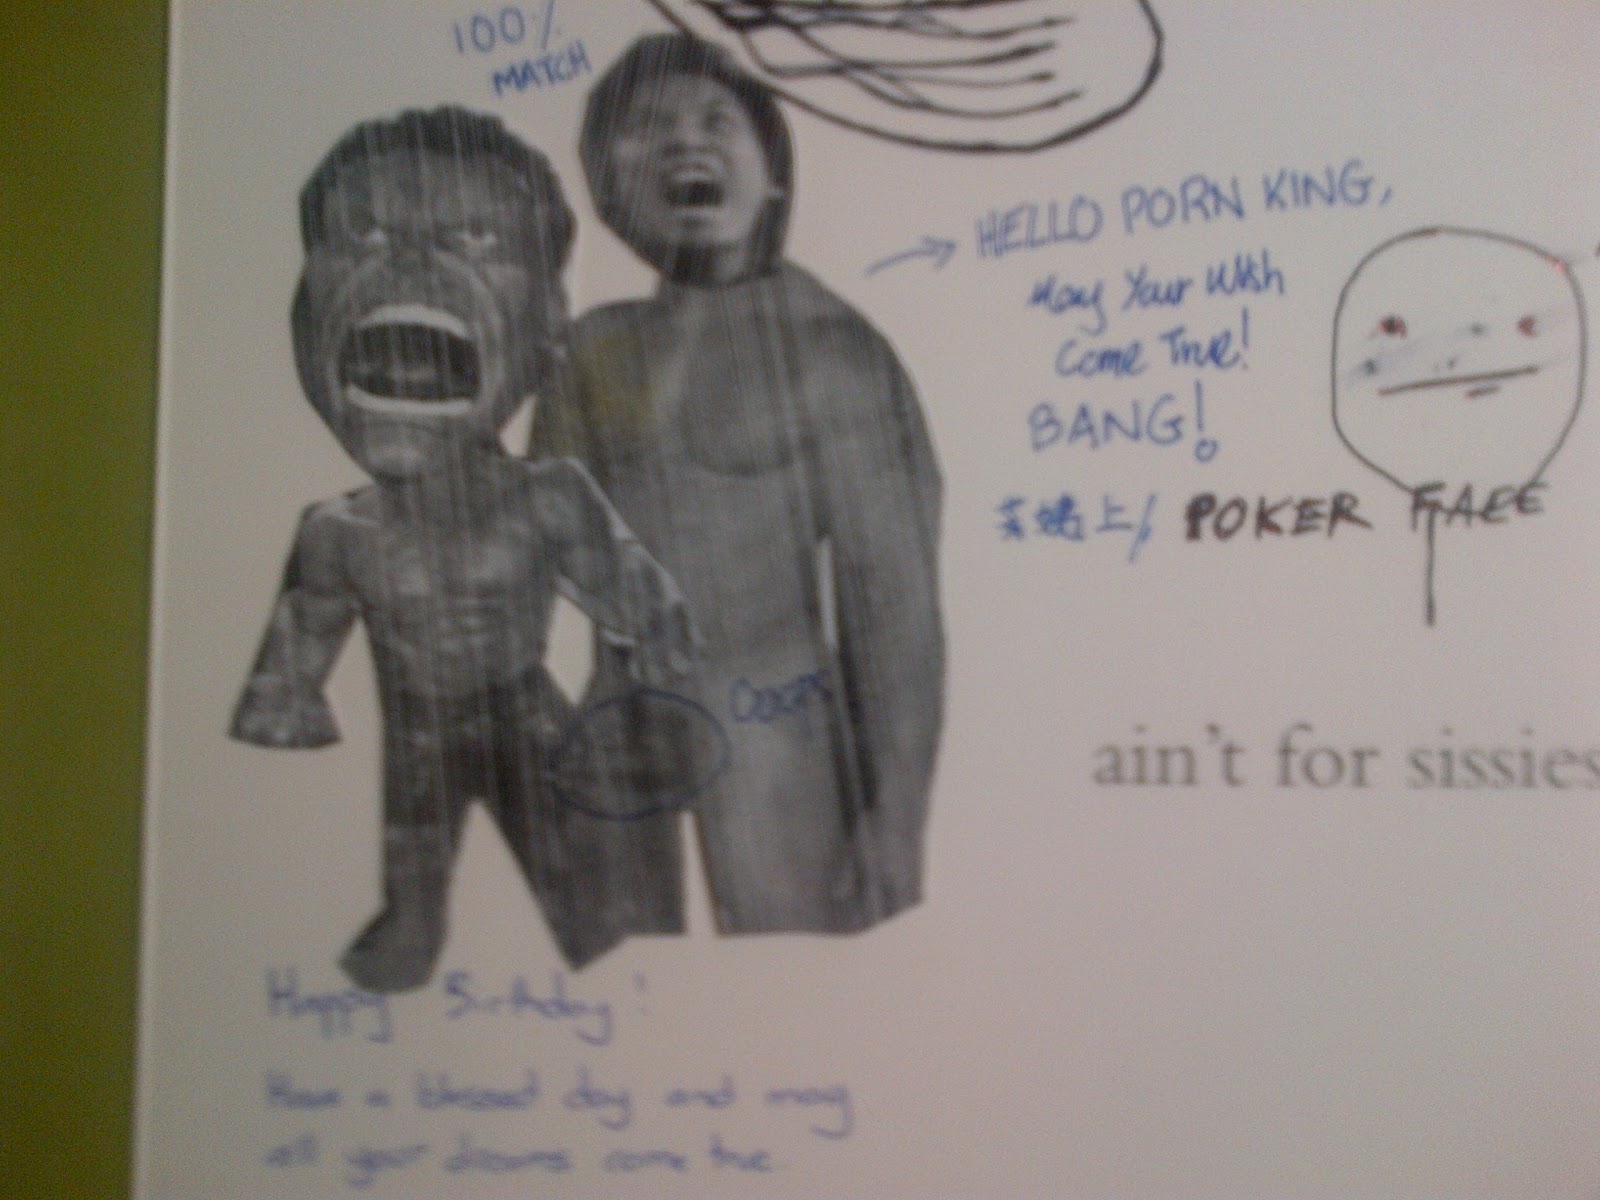 100%
MATCH
HELLO PORN KING,
May Your Wish
Come True!
BANG!
上/ POKER FACE
OOOPS
ain't for sissies
Happy Birthday!
Have a blessed day and may
all your dreams come true